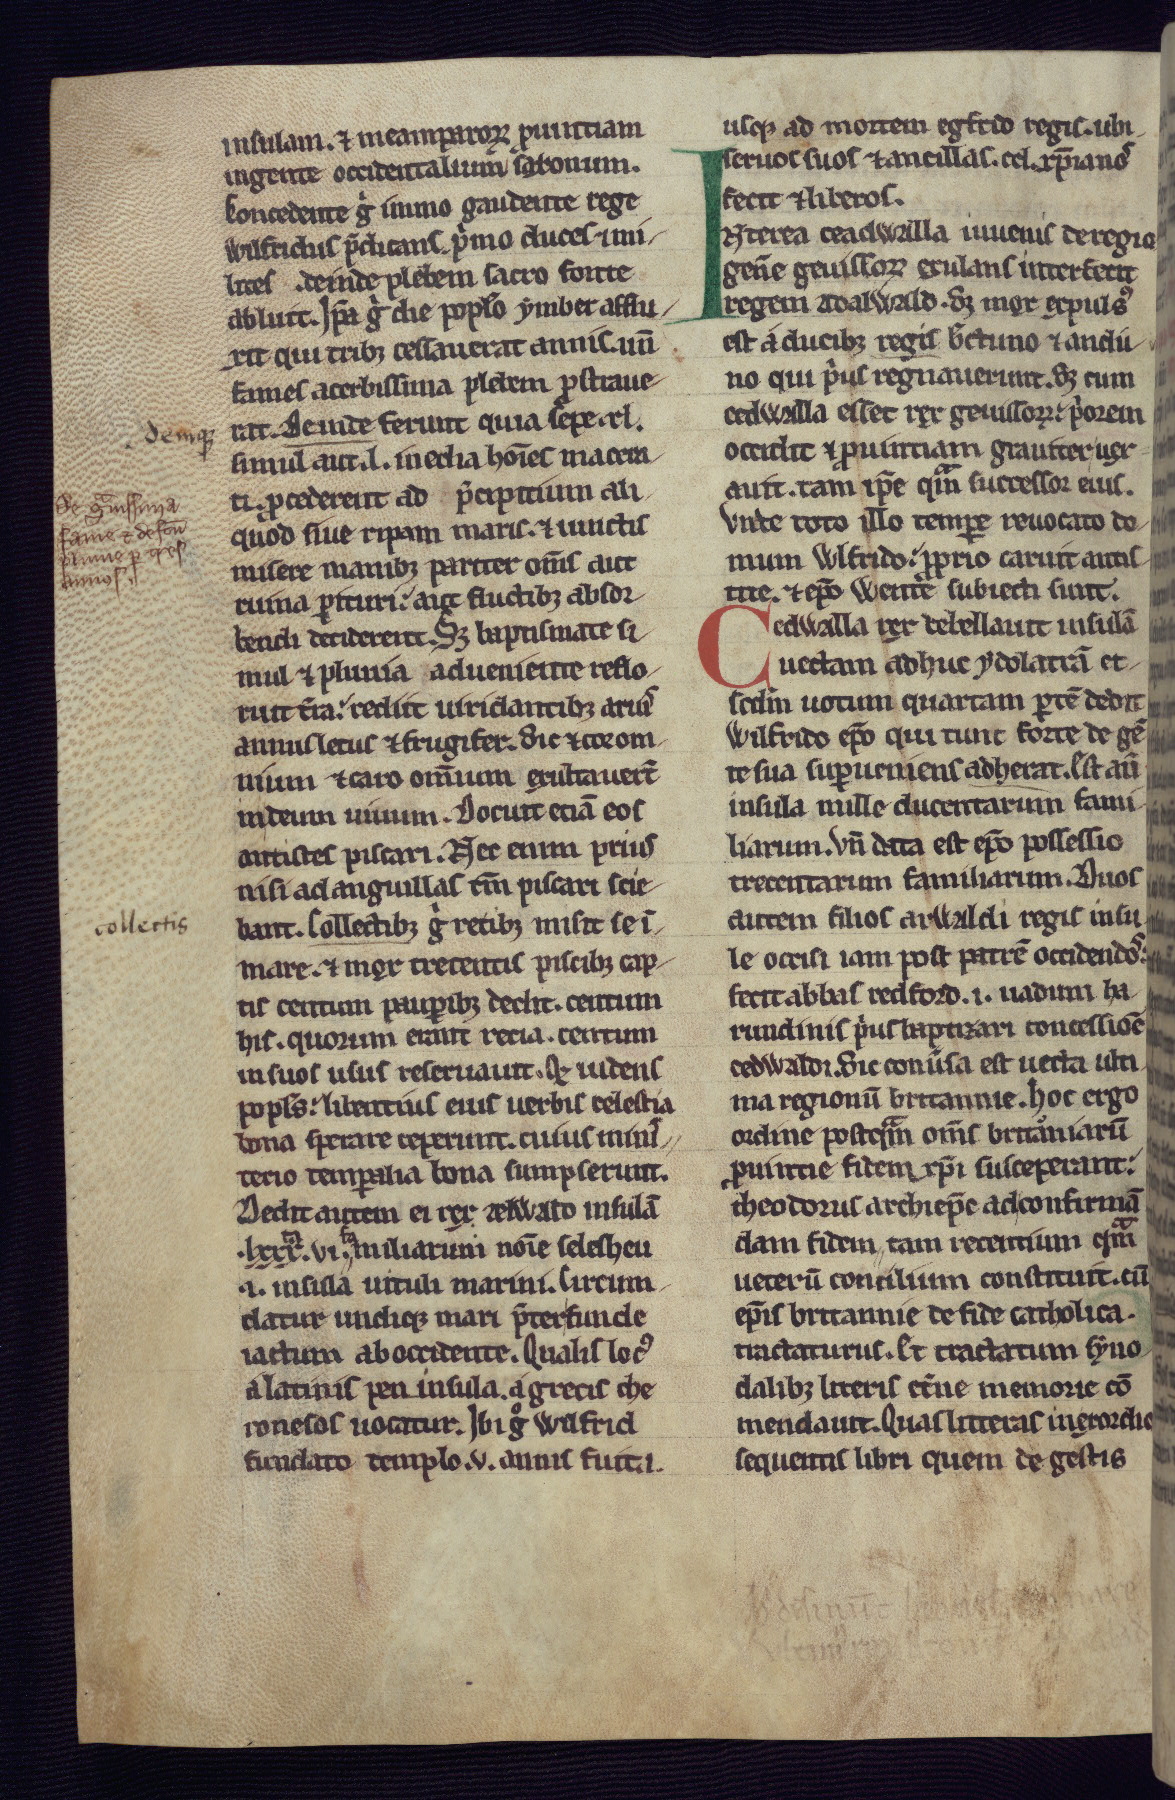 insulam. ⁊ meamparoꝝ ꝓuintiam
ingente occidentalium saxonum.
Concedente g̾ immo gaudente rege
Wilfridus p̄dicans. p̾mo duces ⁊ mi/
lites .deinde plebem sacro fonte
abluit. Ip̄a g̾ die poplo ymber afflu/
xit qui tribꝫ cessauerat annis. uñ
fames acerbissima plebem ꝓstraue
rat. Deinde ferunt quia sepe .xl.
simul aut .l. inedia hoīes macera
ti. ꝓcederent ad p̄cipitium ali
quod siue ripam maris. ⁊ iunctis
misere manibꝫ pariter om̄s aut
ruina ꝑituri: aut fluctibꝫ absor
bendi deciderent. Sꝫ baptismate si
mul ⁊ pluuia adueniente reflo
ruit t̄ra: rediit uiridantibꝫ aruis
annus letus ⁊ frugifer. Sic ⁊ cor om
nium ⁊ caro om̄ium exultauer̄t
indeum uiuum. Docuit etiā eos
antistes piscari. Nec enim prius
nisi ad anguillas tm̄ piscari scie
bant. Collectibꝫ g̾ retibꝫ misit se ī
mare. ⁊ mox trecentis piscibꝫ cap
tis centum pauꝑibꝫ dedit. centum
his. quorum erant recia. centum
in suos usus reseruauit. Qꝫ uidens
popl̄s: libentius eius uerbis celestia
bona sperare ceperunt. cuius minis
terio temꝑalia bona sumpserunt.
Dedit autem ei rex aelwald insulā
.lxxx.ta vi.ta miliarum noīe seleseheu
.i. insula uituli marini. Circum
datur undiqꝫ mari p̄ter funde
iactum ab occidente. Qualis locꝰ
a latinis pen insula. a grecis che
ronesos uocatur. Ibi g̊ Wilfrid
fundato templo .v. annis fuit.
usqꝫ ad mortem egfrid regis. ubi
seruos suos ⁊ ancillas. ccl. xp̄ianos
fecit ⁊ liberos.
INterea ceadWalla iuuenis de regio
gen̄e geuissoꝝ exulans interfecit
regem adalWald. Sꝫ mox expulsꝰ
est a ducibꝫ regis bctuno ⁊ andu
no qui p̾us regnauerunt. Sꝫ cum
cedwalla esset rex geuissoꝝ: p̾orem
occidit ⁊ ꝓuintiam grauiter uex
auit. tam ip̄e qm̄ successor eius.
Vnde toto illo temꝑe reuocato do
mum Wilfrido: ꝓprio caruit antis
tite. ⁊ ep̄o Wente subiecti sunt.
Cedwalla rex debellauit insulā
uectam adhuc ydolatrā et
scdm̄ uotum quartam ꝑtē dedit
Wilfrido ep̄o qui tunc forte de gē
te sua suꝑueniens adherat. Est aū
insula mille ducentarum fami
liarum. Vñ data est ep̄o possessio
trecentarum familiarum. Duos
autem filios arwaldi regis insu
le occisi iam post patrē occidendos:
fecit abbas redford .i. uadum ha
rundinis p̾us baptizari concessiōe
cedwaldi. Sic conūsa est uecta ulti
ma regionū britannie. Hoc ergo
ordine postqm̄ om̄s britanniarū
ꝓuintie fidem xp̄i susceperant:
theodorus archiep̄c ad confirmā
dam fidem tam recentium qm̄
ueterū concilium constituit. cū
ep̄is britannie de fide catholica.
tractaturus. Et tractatum syno
dalibꝫ literis et̄ne memorie cō
mendauit. Quas litteras in exordio
sequentis libri quem de gestis
deniqꝫ
de g̾uissima
fame ⁊ defcu
pluuie ꝑ tres
annos.
collectis